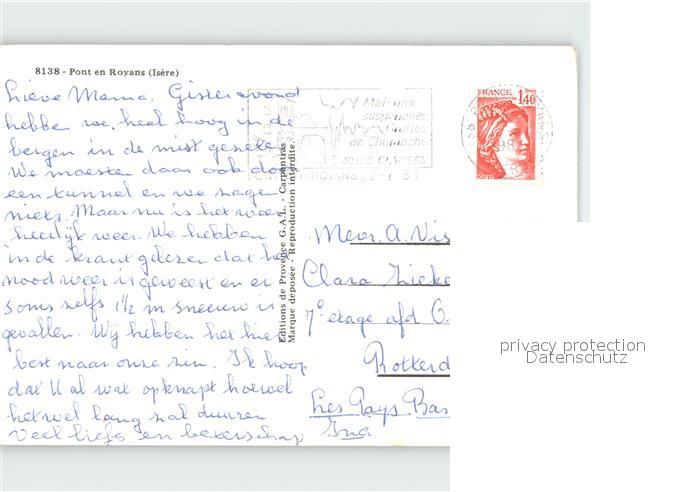 8138 - Pont en Royans (Isère)
Lieve Mama, Gisteravond
hebben we, heel hoog in de
bergen in de mist gezeten
We moesten daar ook door
een tunnel en we zagen
niets. Maar nu is het weer
heerlijk weer. We hebben
in de krant gelezen dat het
noodweer is geweest en er
soms zelfs 1½ m sneeuw is
gevallen. Wij hebben het hier
best naar onze zin. Ik hoop
dat U al wat opknapt hoewel
het wel lang zal duuren
Veel liefs en beterschap
Ina
Editions de Provence G.A.L. - Carpentras
Marque déposée - Reproduction interdite.
Maisons
suspendues
Grottes
de Choranche
SITES CLASSES
FRANCE
1,40
POSTES
Mevr. A. Vis
Clara Zieke
7e etage afd
Rotterd
Les Pays Bas
privacy protection
Datenschutz